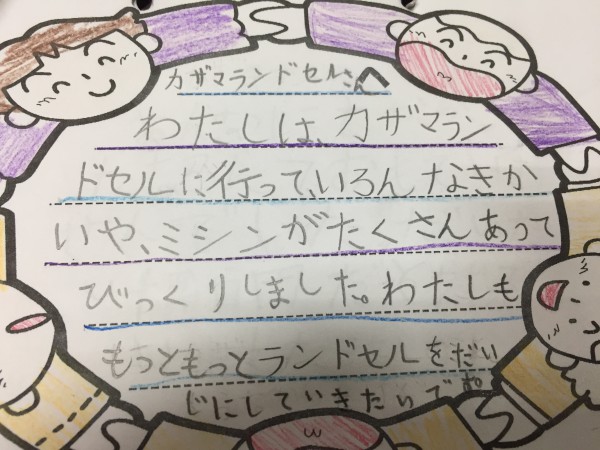 カザマランドセルさんへ
わたしは、カザマラン
ドセルに行って、いろんなきか
いや、ミシンがたくさんあって
びっくりしました。わたしも
もっともっとランドセルをだい
じにしていきたいです。